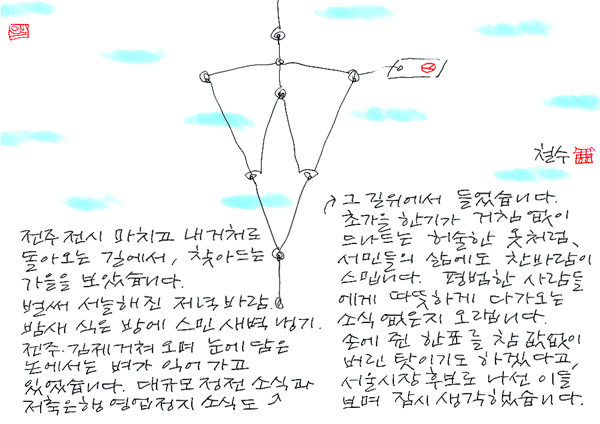 철수
전주전시 마치고 내거처로
돌아오는 길에서, 찾아드는
가을을 보았습니다.
벌써 서늘해진 저녁 바람.
밤새 식은 방에 스민 새벽 냉기.
전주·김제거쳐 오며 눈에 담은
논에서는 벼가 익어 가고
있었습니다. 대규모 정전 소식과
저축은행 영업정지 소식도
그 길위에서 들었습니다.
초가을 한기가 거침 없이
드나드는 허술한 옷처럼,
서민들의 삶에도 찬바람이
스밉니다. 평범한 사람들
에게 따뜻하게 다가오는
소식 없은지 오랍니다.
손에 쥔 한표를 참 값없이
버린 탓이기도 하겠다고,
서울시장 후보로 나선 이들
보며 잠시 생각했습니다.